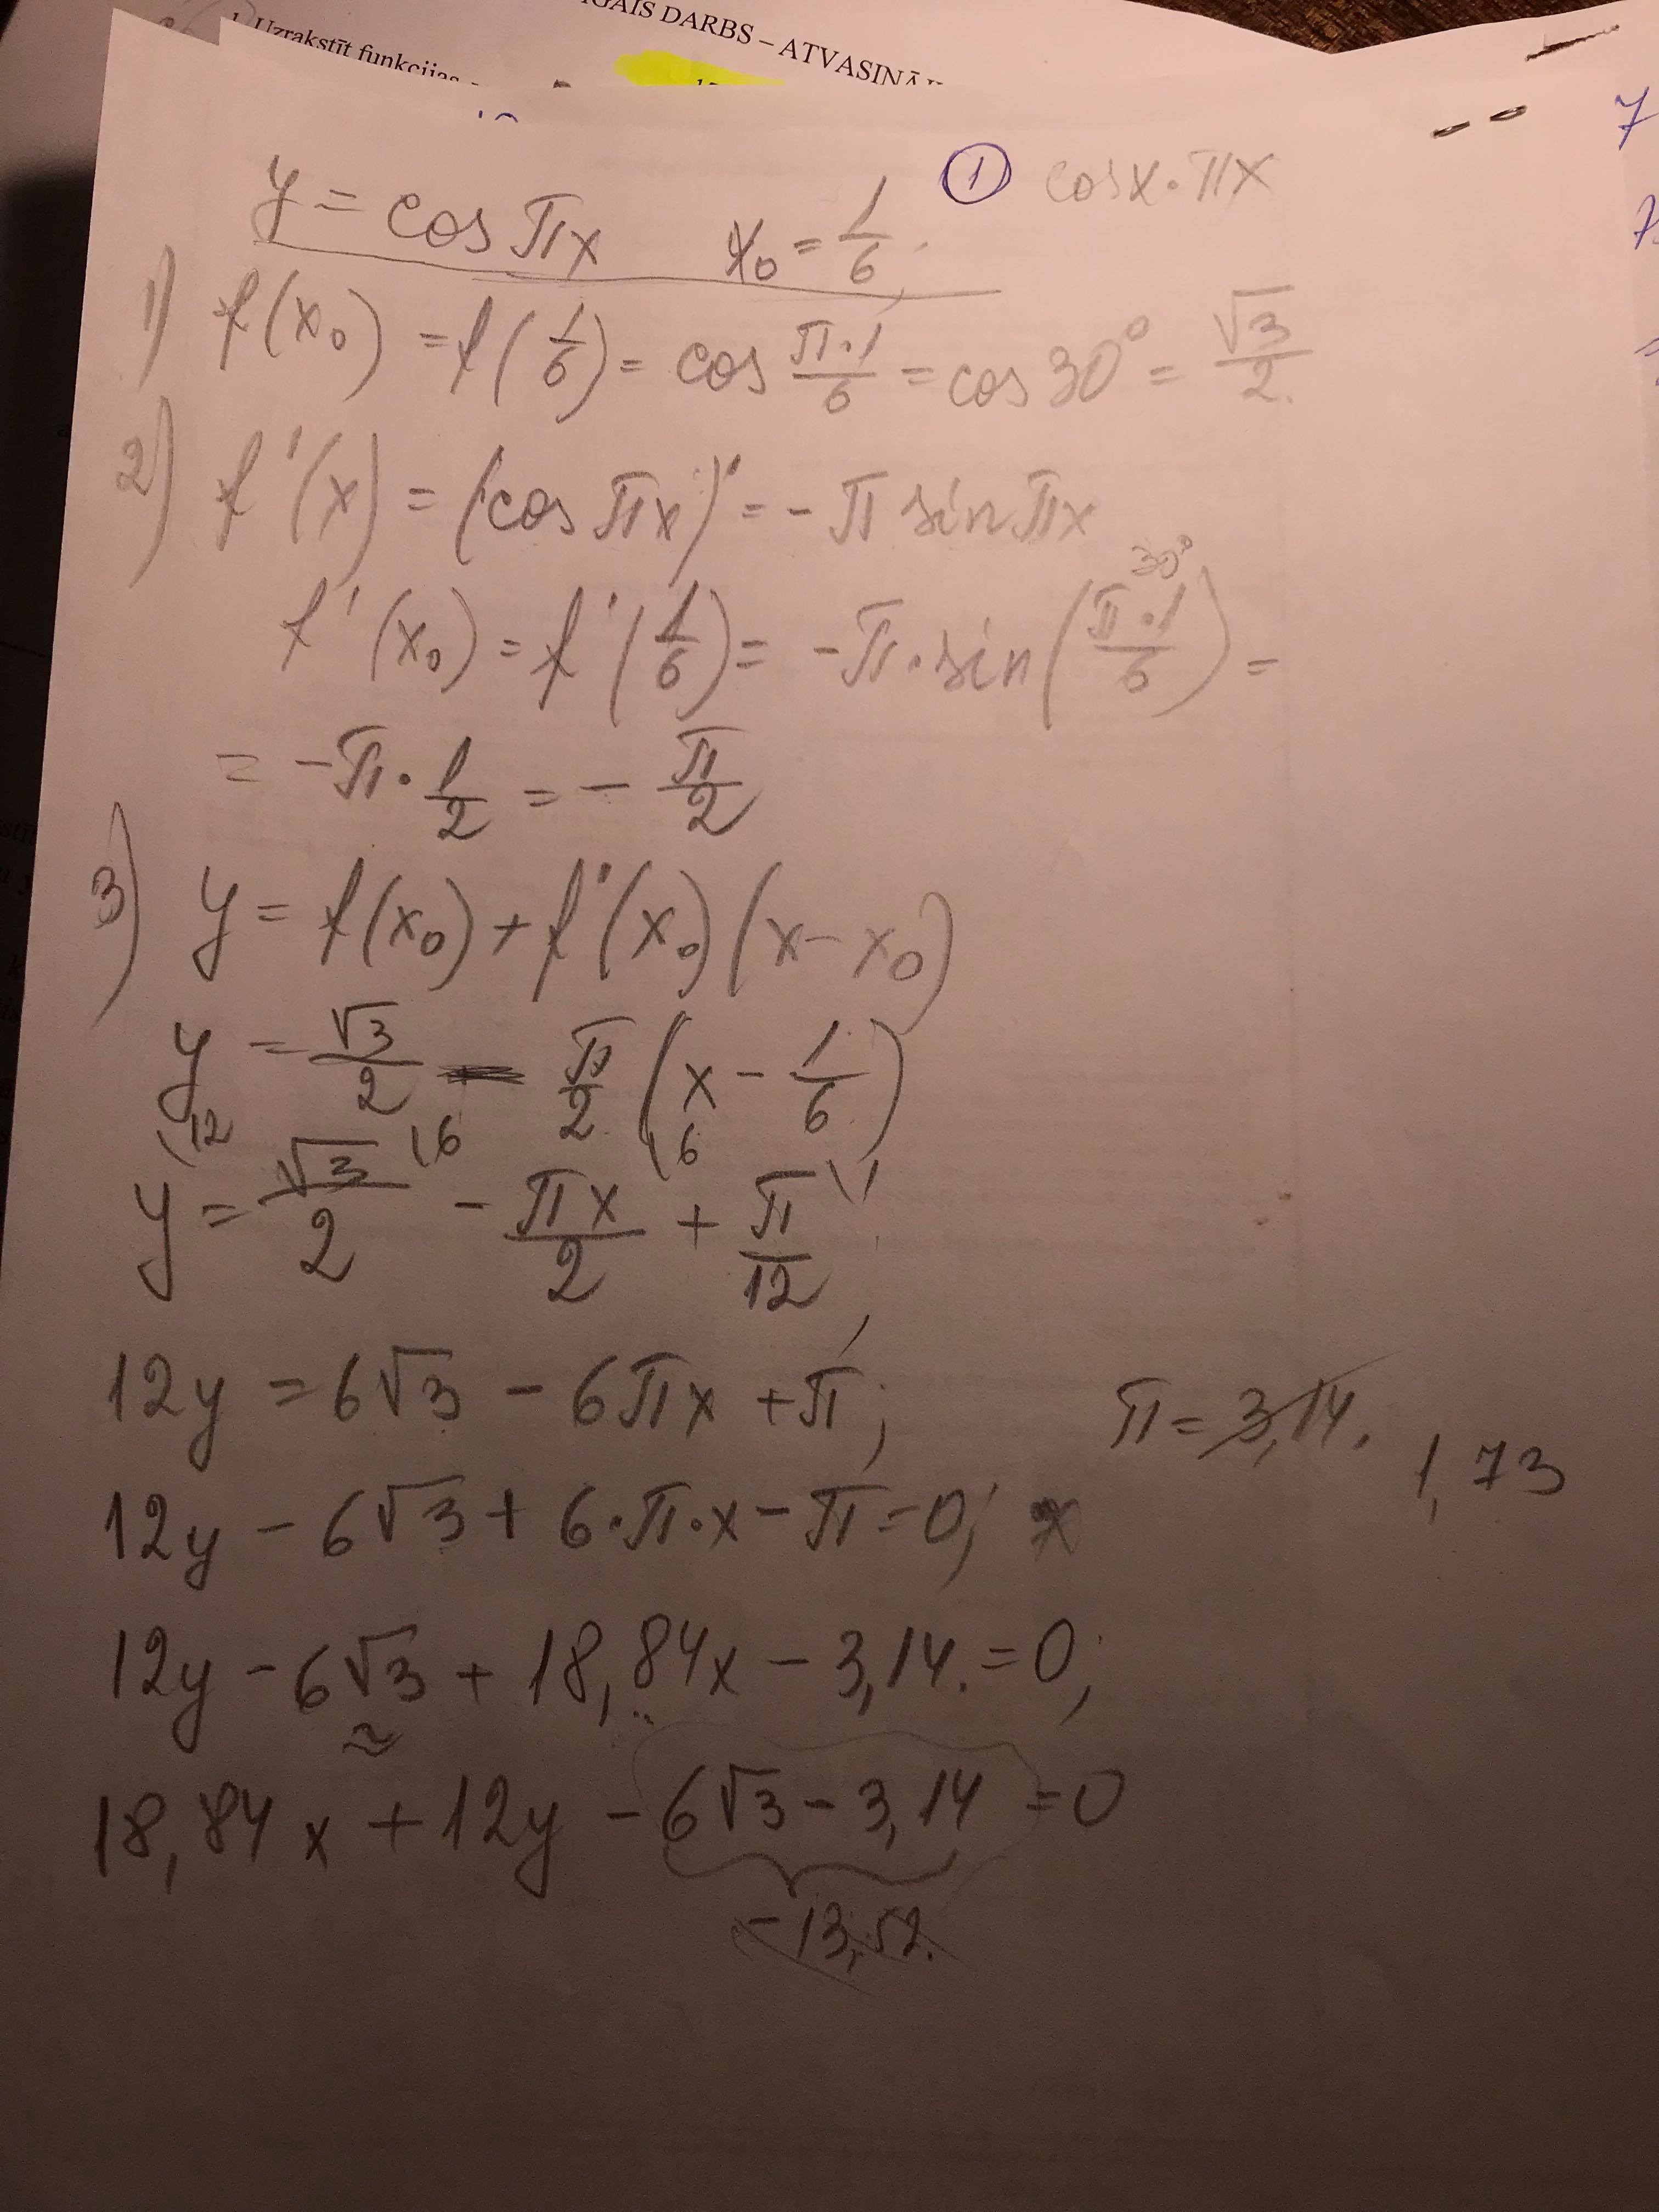 DARBS – ATVASINĀ
Uzrakstīt funkcijas
① cosx·πx
y = cos πx   x₀ = 1/6
1) f(x₀) = f(1/6) = cos π·1/6 = cos 30° = √3/2.
2) f'(x) = (cos πx)' = - π sin πx
30°
f'(x₀) = f'(1/6) = -π·sin(π·1/6) =
= -π·1/2 = - π/2
3) y = f(x₀) + f'(x₀)(x - x₀)
y = √3/2 - π/2 (x - 1/6)
(12   (6   (6
y = √3/2 - πx/2 + π/12 ;
12y = 6√3 - 6πx + π;
π = 3,14.   1,73
12y - 6√3 + 6·π·x - π = 0; x
12y - 6√3 + 18,84x - 3,14. = 0;
≈
18,84x + 12y - 6√3 - 3,14 = 0
-13,52.